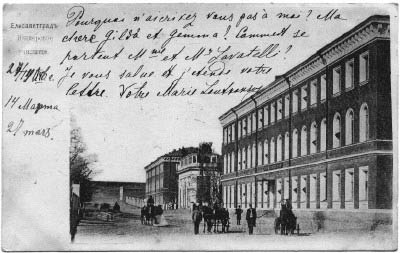 Елисаветградъ
Юнкерское
Училище.
Pourquoi n'ascrivez vous pas à moi? Ma
chere Gilda et Gemma! Comment se
portent Mme et Mr Lavatelli?
Je vous salue et j'etends votre
lettre. Votre Marie
14 Марта
27 mars.